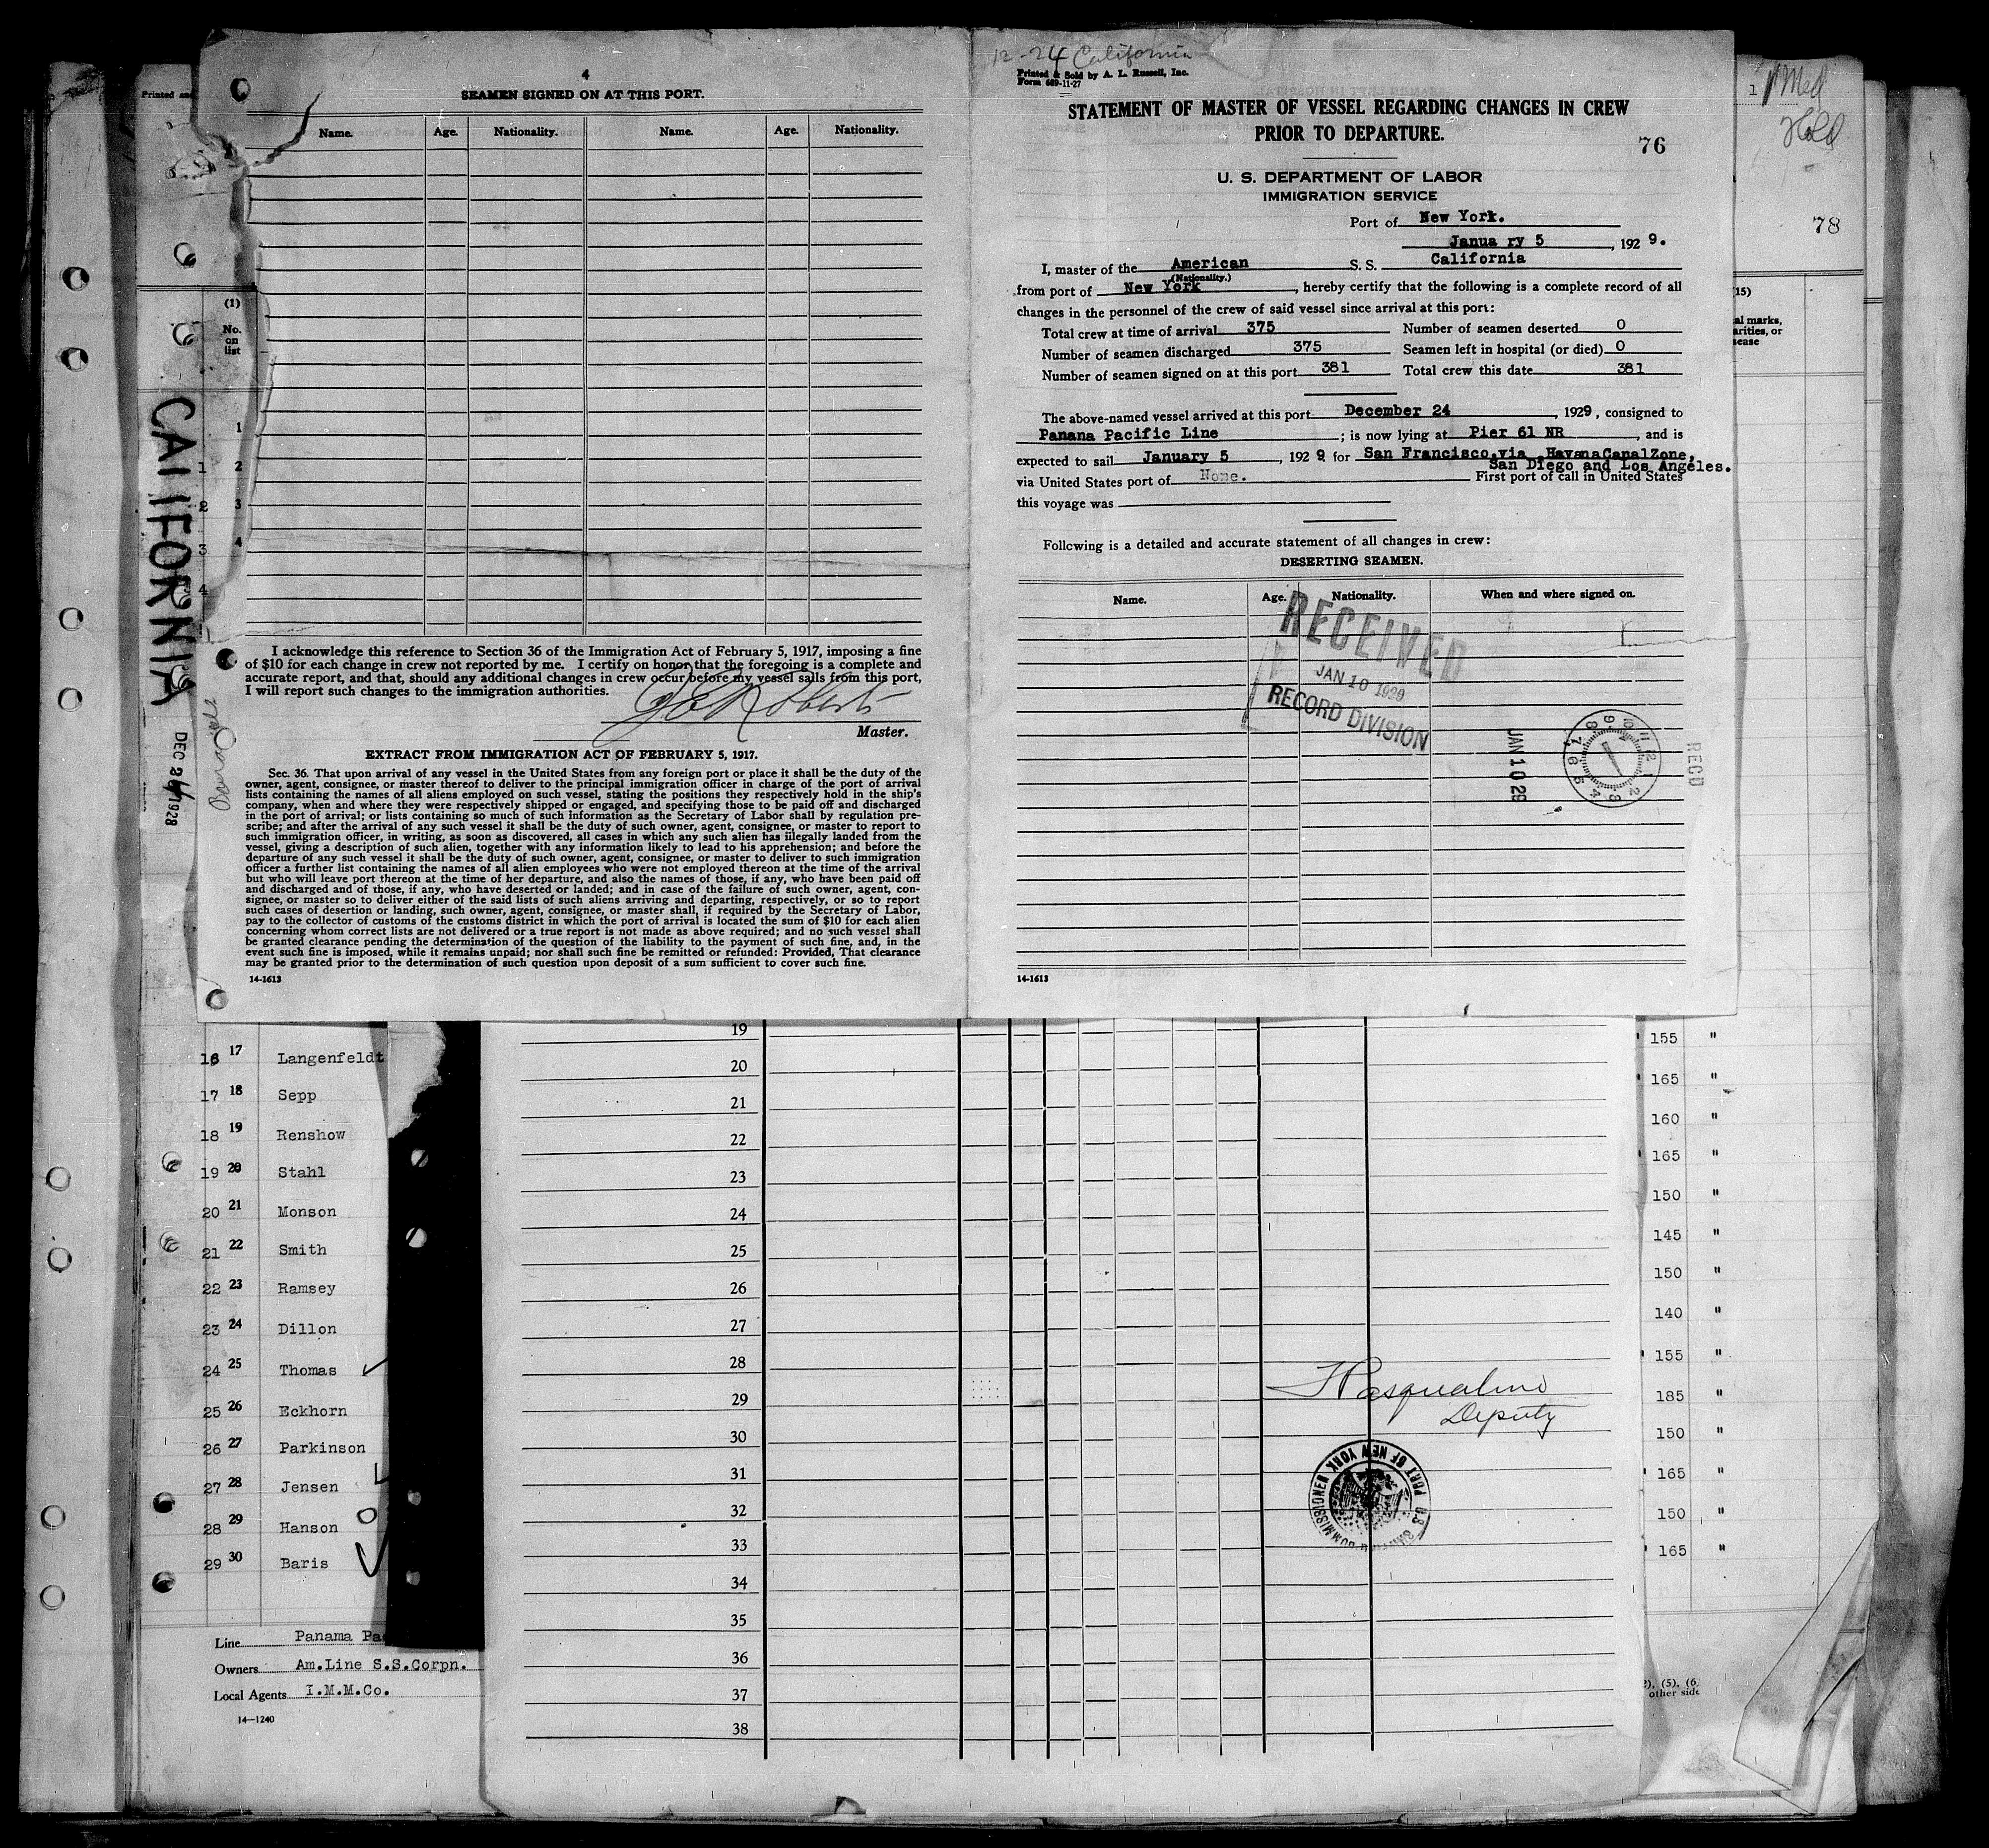 4
SEAMEN SIGNED ON AT THIS PORT.
Name. Age. Nationality. Name. Age. Nationality.
I acknowledge this reference to Section 36 of the Immigration Act of February 5, 1917, imposing a fine
of $10 for each change in crew not reported by me. I certify on honor that the foregoing is a complete and
accurate report, and that, should any additional changes in crew occur before my vessel sails from this port,
I will report such changes to the immigration authorities.
Roberts
Master.
EXTRACT FROM IMMIGRATION ACT OF FEBRUARY 5, 1917.
Sec. 36. That upon arrival of any vessel in the United States from any foreign port or place it shall be the duty of the
owner, agent, consignee, or master thereof to deliver to the principal immigration officer in charge of the port of arrival
lists containing the names of all aliens employed on such vessel, stating the positions they respectively hold in the ship's
company, when and where they were respectively shipped or engaged, and specifying those to be paid off and discharged
in the port of arrival; or lists containing so much of such information as the Secretary of Labor shall by regulation pre-
scribe; and after the arrival of any such vessel it shall be the duty of such owner, agent, consignee, or master to report to
such immigration officer, in writing, as soon as discovered, all cases in which any such alien has illegally landed from the
vessel, giving a description of such alien, together with any information likely to lead to his apprehension; and before the
departure of any such vessel it shall be the duty of such owner, agent, consignee, or master to deliver to such immigration
officer a further list containing the names of all alien employees who were not employed thereon at the time of the arrival
but who will leave port thereon at the time of her departure, and also the names of those, if any, who have been paid off
and discharged and of those, if any, who have deserted or landed; and in case of the failure of such owner, agent, con-
signee, or master so to deliver either of the said lists of such aliens arriving and departing, respectively, or so to report
such cases of desertion or landing, such owner, agent, consignee, or master shall, if required by the Secretary of Labor,
pay to the collector of customs of the customs district in which the port of arrival is located the sum of $10 for each alien
concerning whom correct lists are not delivered or a true report is not made as above required; and no such vessel shall
be granted clearance pending the determination of the question of the liability to the payment of such fine, and, in the
event such fine is imposed, while it remains unpaid; nor shall such fine be remitted or refunded: Provided, That clearance
may be granted prior to the determination of such question upon deposit of a sum sufficient to cover such fine.
14-1613
12-24 California
Printed & Sold by A. L. Russell, Inc.
Form 689-11-27
STATEMENT OF MASTER OF VESSEL REGARDING CHANGES IN CREW
PRIOR TO DEPARTURE.
76
U. S. DEPARTMENT OF LABOR
IMMIGRATION SERVICE
Port of New York.
Janua ry 5, 192 9.
I, master of the American S. S. California
(Nationality.)
from port of New York, hereby certify that the following is a complete record of all
changes in the personnel of the crew of said vessel since arrival at this port:
Total crew at time of arrival 375 Number of seamen deserted 0
Number of seamen discharged 375 Seamen left in hospital (or died) 0
Number of seamen signed on at this port 381 Total crew this date 381
The above-named vessel arrived at this port December 24, 1929, consigned to
Panana Pacific Line; is now lying at Pier 61 NR, and is
expected to sail January 5, 192 9 for San Francisco,via HavanaCanalZone,
San Diego and Los Angeles.
via United States port of None. First port of call in United States
this voyage was
Following is a detailed and accurate statement of all changes in crew:
DESERTING SEAMEN.
Name. Age. Nationality. When and where signed on.
RECEIVED
JAN 10 1929
RECORD DIVISION
JAN 10 29
RECD
14-1613
1 Med
Hold
78
(15)
al marks,
arities, or
sease
Printed and
(1)
No.
on
list
CALIFORNIA
DEC 24 1928
1
1 2
2 3
3 4
4
16 17 Langenfeldt
17 18 Sepp
18 19 Renshow
19 20 Stahl
20 21 Monson
21 22 Smith
22 23 Ramsey
23 24 Dillon
24 25 Thomas
25 26 Eckhorn
26 27 Parkinson
27 28 Jensen
28 29 Hanson
29 30 Baris
Line Panama Pa
Owners Am.Line S.S.Corpn.
Local Agents I.M.M.Co.
14-1240
19
20
21
22
23
24
25
26
27
28
29
30
31
32
33
34
35
36
37
38
Pasqualino
Deputy
COMMISSIONER PORT OF NEW YORK U.S
155 "
165 "
160 "
165 "
150 "
145 "
150 "
140 "
155 "
185 "
150 "
165 "
150 "
165 "
), (5), (6
other side